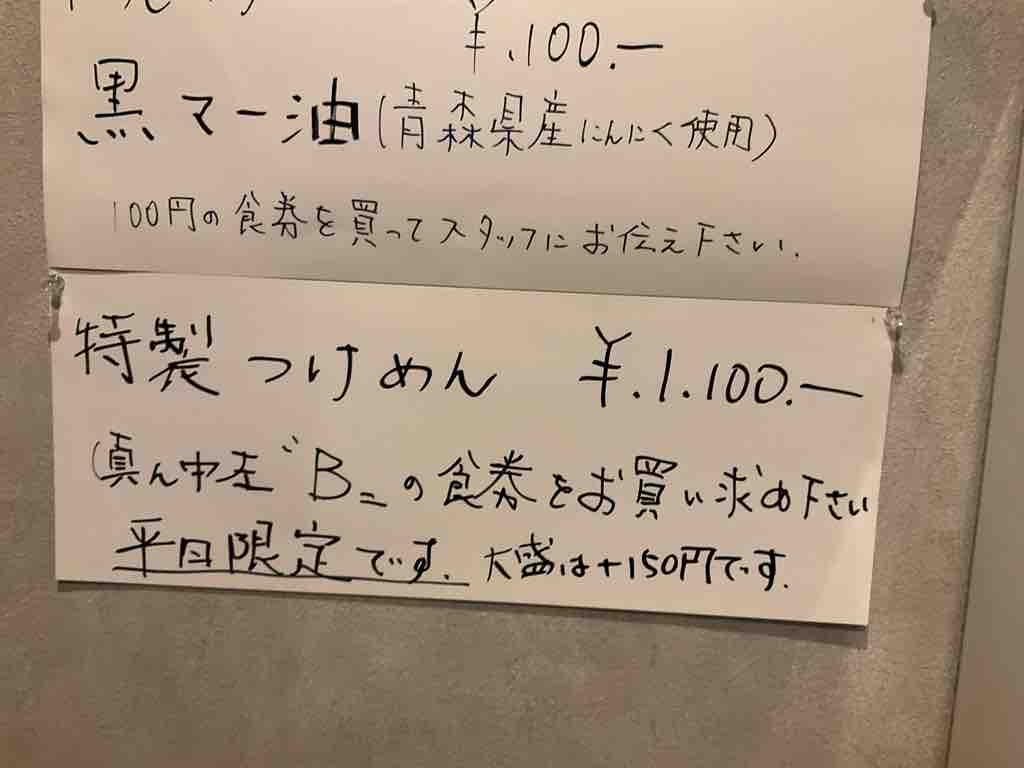 ¥.100.―
黒マー油(青森県産にんにく使用)
100円の食券を買ってスタッフにお伝え下さい.
特製つけめん ¥.1.100.―
(真ん中左〝B〟の食券をお買い求め下さい
平日限定です. 大盛は+150円です.